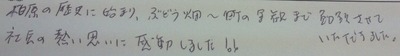 柏原の歴史に始まり、ぶどう畑〜町の景観まで 勉強させて
いただきました。
社長の熱い思いに 感動しました!!